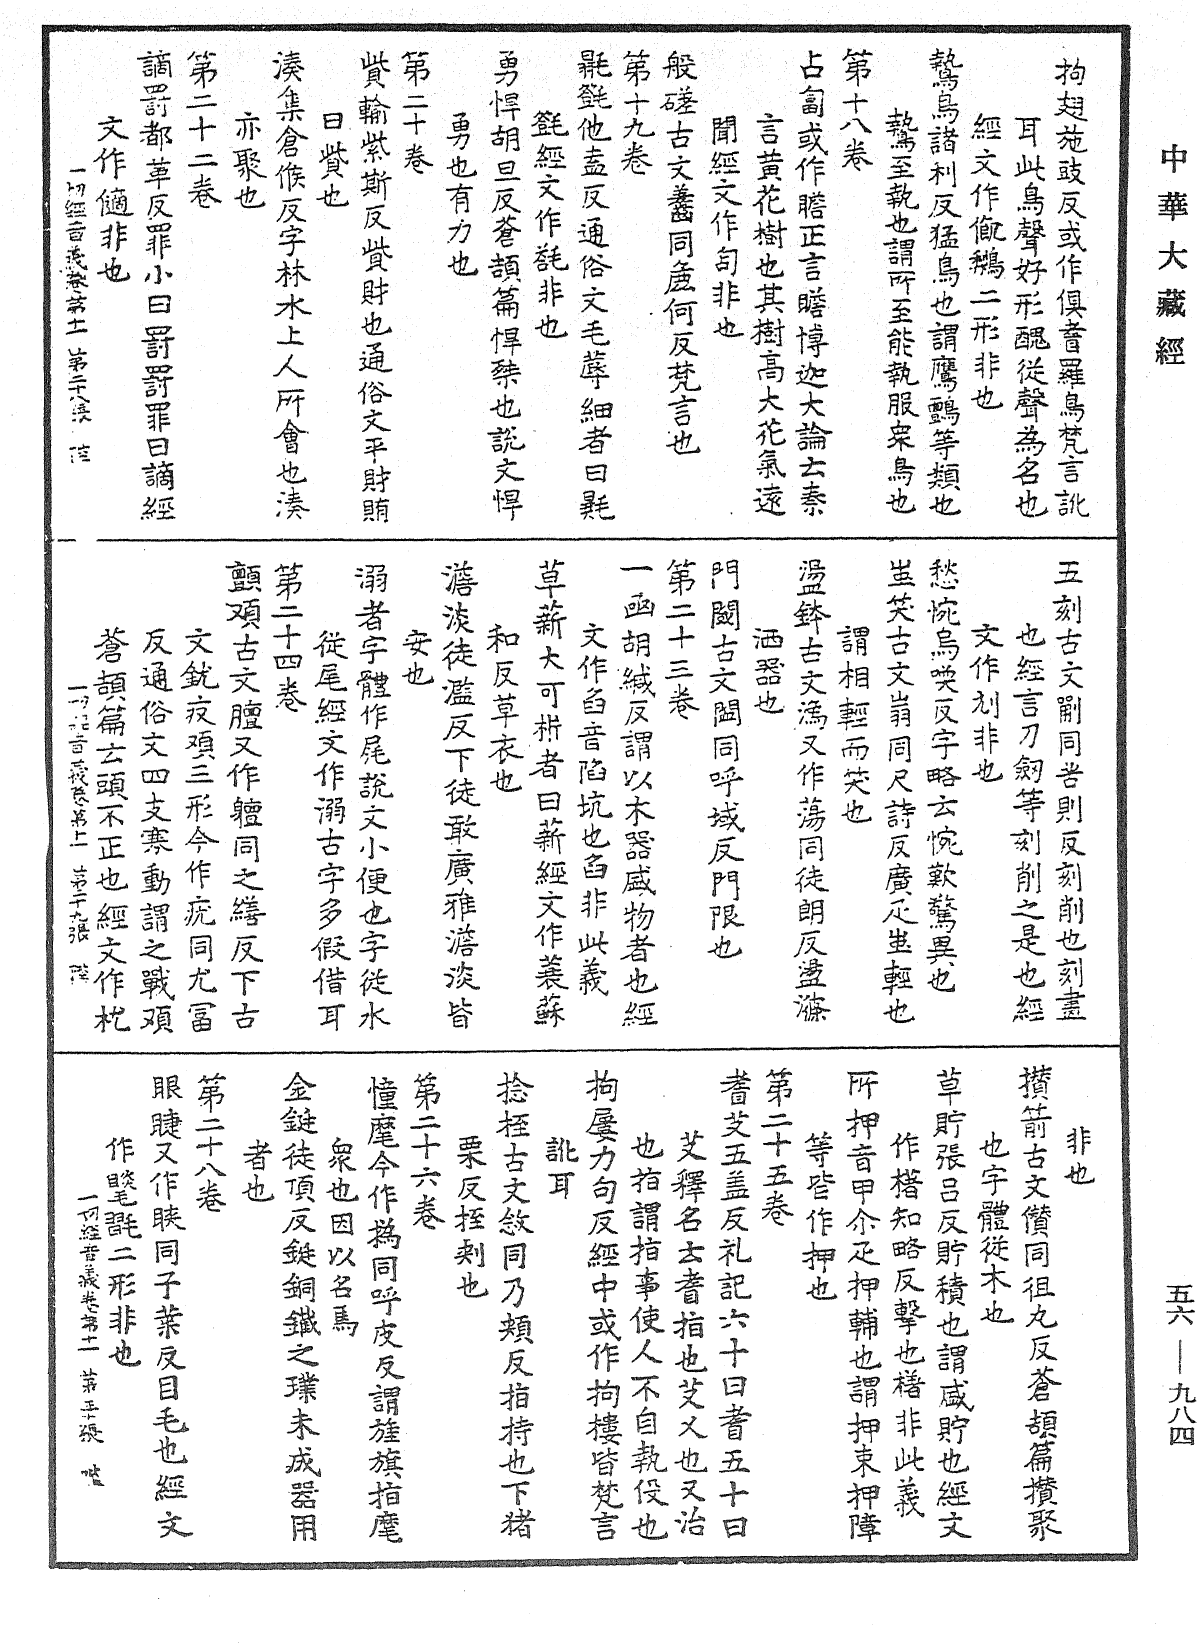 中華大藏經
拘翅施豉反或作俱耆羅鳥梵言訛
耳此鳥聲好形醜從聲為名也
經文作𪃿鵶二形非也
鷙鳥諸利反猛鳥也謂鷹鸇等類也
鷙至執也謂所至能執服衆鳥也
第十八卷
占匐或作瞻正言瞻博迦大論云秦
言黃花樹也其樹高大花氣遠
聞經文作匋非也
般磋古文蠤同麁何反梵言也
第十九卷
毾㲪他盍反通俗文毛蓐細者曰毾
㲪經文作毲非也
勇悍胡旦反蒼頡篇悍桀也說文悍
勇也有力也
第二十卷
貲輸紫斯反貲財也通俗文平財賄
曰貲也
湊集倉候反字林水上人所會也湊
亦聚也
第二十二卷
謫罰都革反罪小曰罰罰罪曰謫經
文作讁非也
一切經音義卷第十一　第二十八張　陸
五刻古文𠜶同苦則反刻削也刻畫
也經言刀劒等刻削之是也經
文作刘非也
愁惋烏喚反字略云惋歎驚異也
蚩笑古文翁同尺詩反廣疋蚩輕也
謂相輕而笑也
盪鉢古文潒又作蕩同徒朗反盪滌
洒器也
門閾古文閾同呼域反門限也
第二十三卷
一函胡緘反謂以木器盛物者也經
文作臽音陷坑也臽非此義
草薪大可析者曰薪經文作蓑蘇
和反草衣也
澹淡徒濫反下徒敢廣雅澹淡皆
安也
溺者字體作𡲰說文小便也字從水
從尾經文作溺古字多假借耳
第二十四卷
顫頏古文膻又作𩕊同之繕反下古
文㽱疫頏三形今作疣同尤富
反通俗文四支寒動謂之戰頏
蒼頡篇云頭不正也經文作枕
一切經音義卷第十一　第二十九張　陸
非也
攢箭古文儹同徂丸反蒼頡篇攢聚
也字體從木也
草貯張呂反貯積也謂盛貯也經文
作櫡知略反擊也櫡非此義
所押音甲尒疋押輔也謂押束押障
等皆作押也
第二十五卷
耆艾五盖反礼記六十曰耆五十曰
艾釋名云耆指也艾乂也乂治
也指謂指事使人不自執役也
拘屢力句反經中或作拘樓皆梵言
訛耳
捻挃古文敜同乃頰反指持也下猪
栗反挃刺也
第二十六卷
憧麾今作撝同呼皮反謂旌旗指麾
衆也因以名焉
金鋌徒頂反鋌銅鐵之璞未成器用
者也
第二十八卷
眼睫又作䀹同子葉反目毛也經文
作毰毦二形非也
一切經音義卷第十一　第三十張　陸
五六—九八四